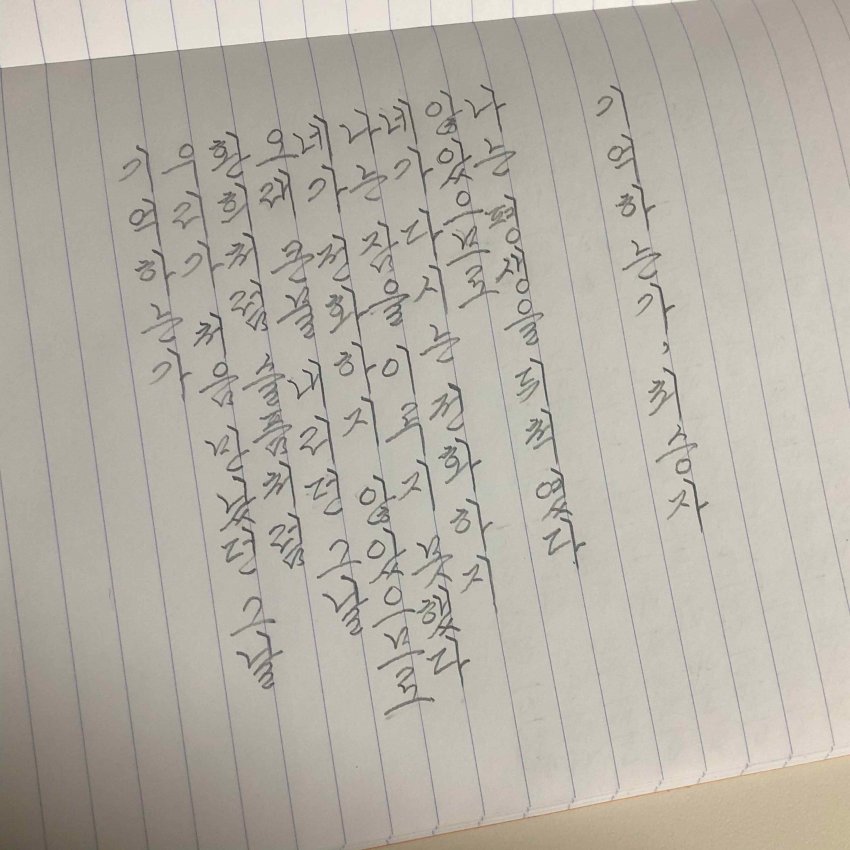 기억하는가
우리가 처음 만났던 그날
환희처럼 슬픔처럼
오래 큰물 내리던 그날
네가 전화하지 않았으므로
나는 잠을 이루지 못했다
네가 다시는 전화하지
않았으므로
나는 평생을 뒤척였다
기억하는가, 최승자